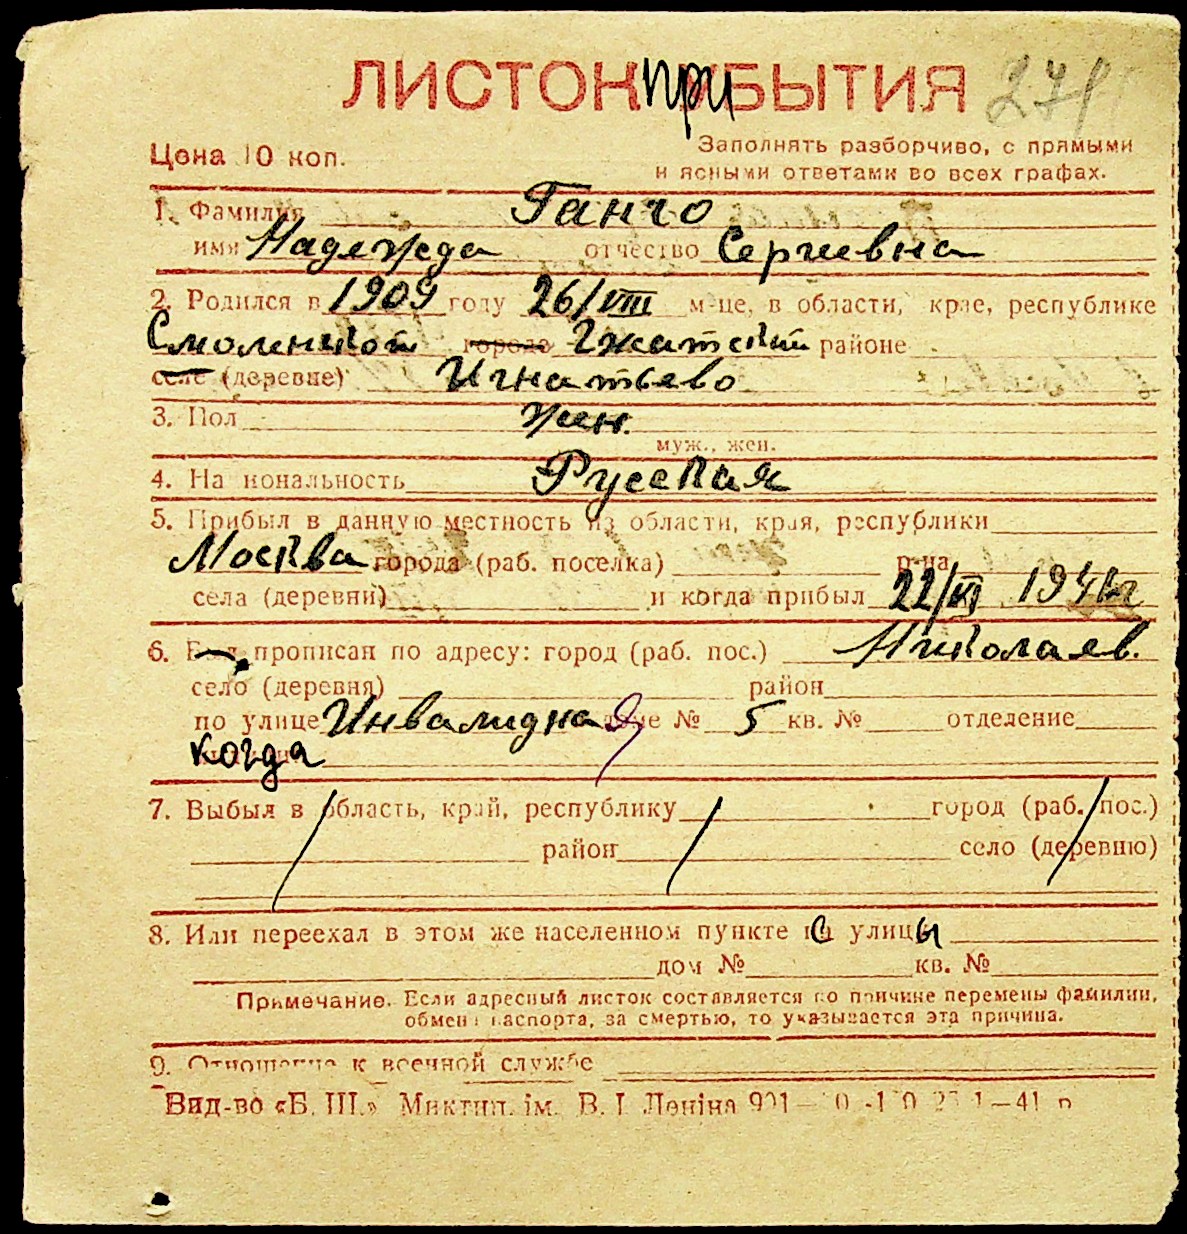 ЛИСТОК ПРИБЫТИЯ 271
Цена 10 коп.
Заполнять разборчиво, с прямыми
и ясными ответами во всех графах.
1. Фамилия Ганчо
имя Надежда отчество Сергиевна
2. Родился в 1909 году 26/VIII м-це, в области, крае, республике
Смоленской города Гжатский районе
селе (деревне) Игнатьево
3. Пол жен.
муж., жен.
4. Национальность Русская
5. Прибыл в данную местность из области, края, республики
Москва города (раб. поселка) р-на
села (деревни) и когда прибыл 22/VI 1941 г
6. Был прописан по адресу: город (раб. пос.) Николаев.
село (деревня) район
по улице Инвалидная № 5 кв. № отделение
когда
7. Выбыл в область, край, республику город (раб. пос.)
район село (деревню)
8. Или переехал в этом же населенном пункте с улицы
дом № кв. №
Примечание. Если адресный листок составляется по причине перемены фамилии,
обмена паспорта, за смертью, то указывается эта причина.
9. Отношение к военной службе
Вид-во «Б. Ш.» Миктип. ім. В. І. Леніна